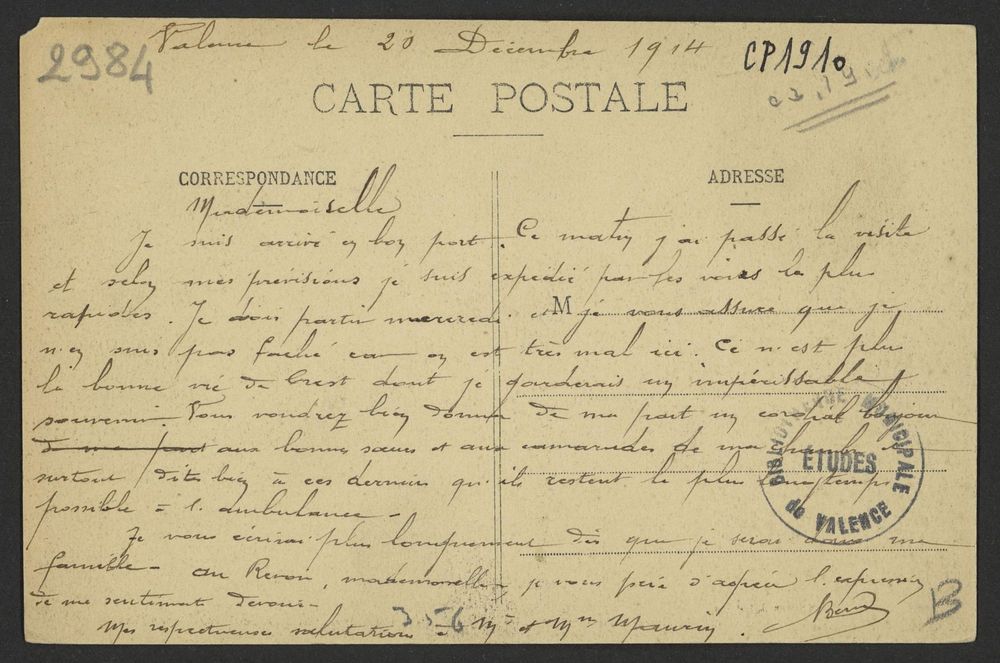 2984
Valence le 20 Décembre 1914
CP1910
CARTE POSTALE
CORRESPONDANCE
ADRESSE
Mademoiselle
Je suis arrivé en bon port. Ce matin j'ai passé la visite
et selon mes prévisions je suis expédié par les voies les plus
rapides. Je dois partir mercredi et M je vous assure que je
n'en suis pas faché car on est très mal ici. Ce n'est plus
la bonne vie de Crest dont je garderais un impérissable
souvenir. Vous voudrez bien donner de ma part un cordial bonjour
de ma part aux bonnes sœurs et aux camarades de ma
surtout dites bien à ces derniers qu'ils restent le plus longtemps
possible à l'ambulance -
Je vous écrirai plus longuement dès que je serai dans ma
famille - Au Revoir, mademoiselle, je vous prie d'agréer l'expression
de me sentiments dévoués -
Mes respectueuses salutations à Mr et Mme Maurin.
3 5 6
B
BIBLIOTHEQUE MUNICIPALE
ÉTUDES
de VALENCE